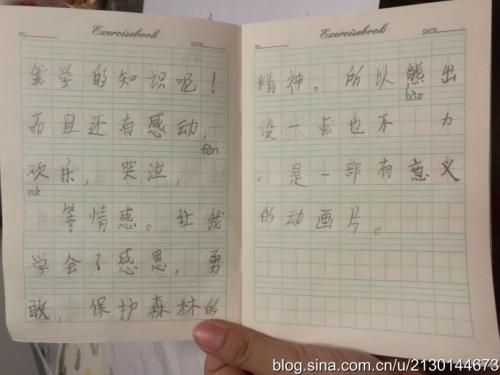 Exercisebook
DATE
我学的知识呢！
而且还有感动，
fèn
欢乐，哭泣，
nù
等情感。让我
学会了感恩，勇
敢，保护森林的
Exercisebook
DATE
精神。所以熊出
bào
没一点也不 力
，是一部有意义
的动画片。
blog.sina.com.cn/u/2130144673